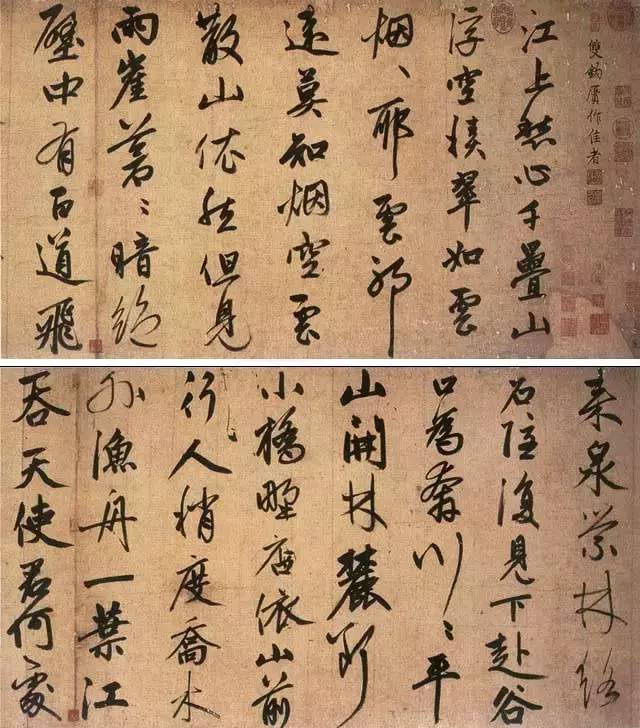 雙鈎贗作佳者
江上愁心千疊山
浮空積翠如雲
烟、耶雲耶
遠莫知烟空雲
散山依然但見
兩崖蒼、暗絕
壁中有百道飛
來泉縈林絡
石隱復見下赴谷
口為奔川、平
山開林麓斷
小橋野店依山前
行人稍度喬木
外漁舟一葉江
吞天使君何處